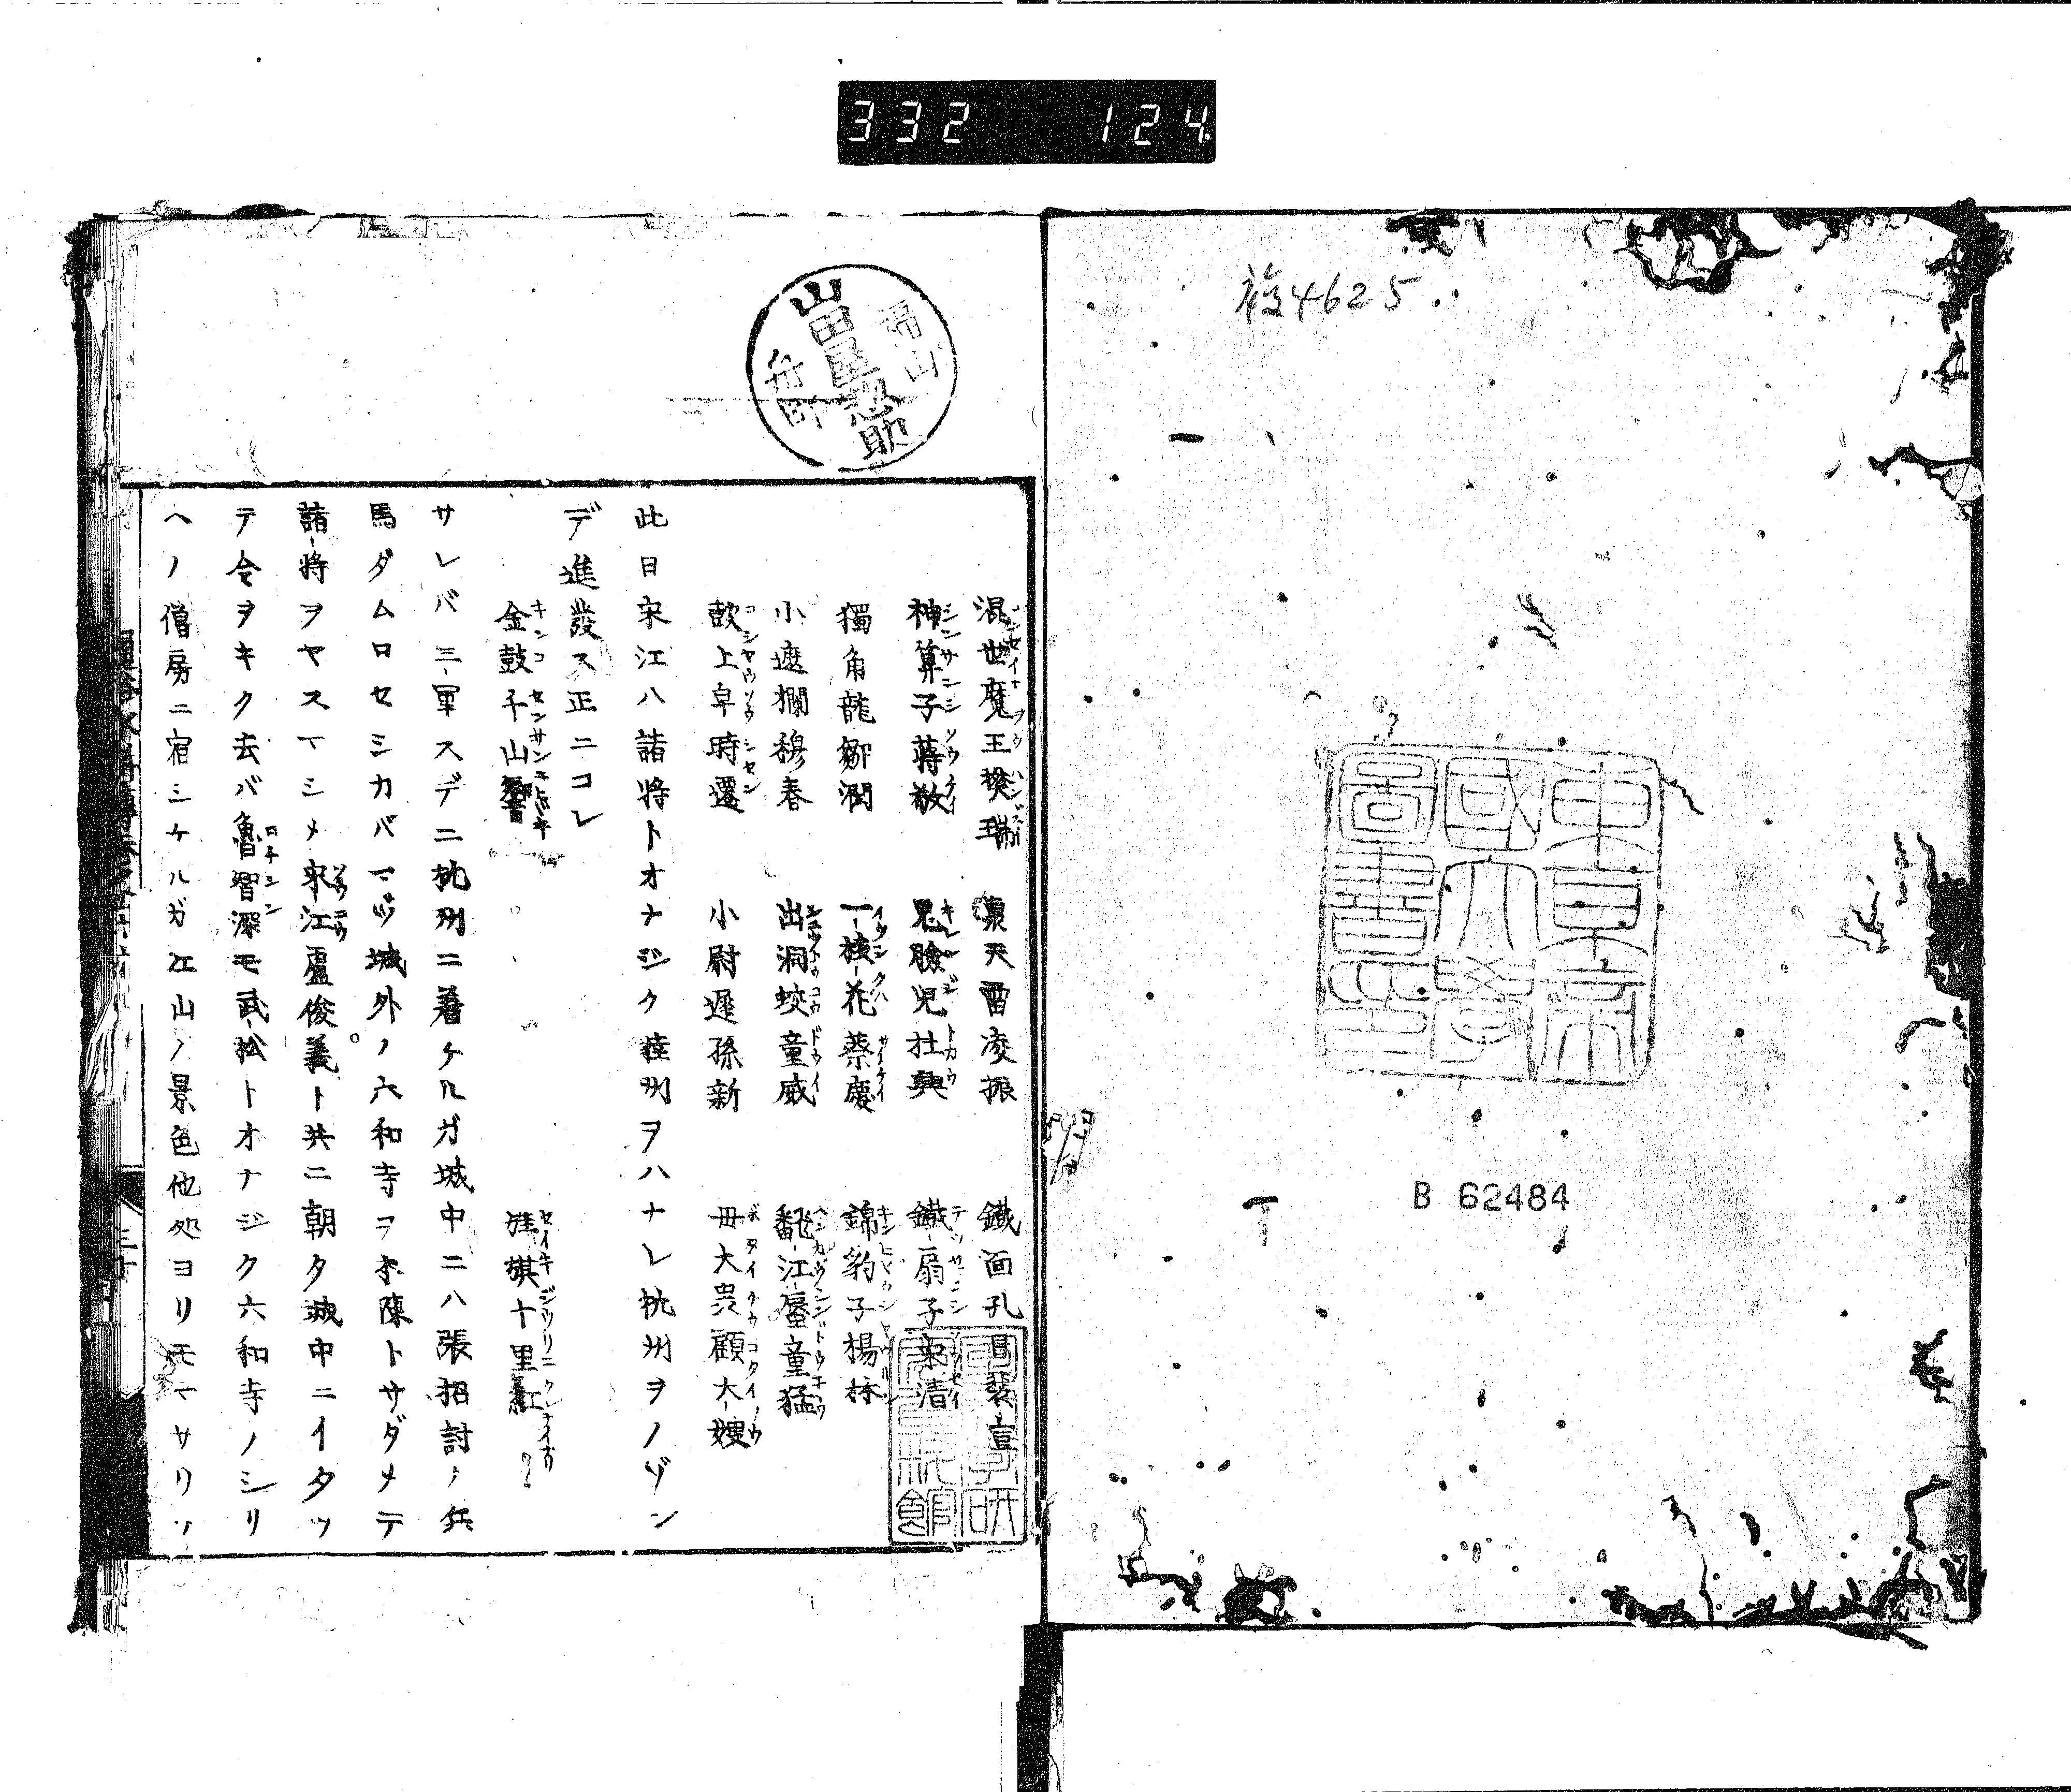 332 124
4625
東京帝
國大學
圖書印
B 62484
山田屋惣助
混世魔王樊瑞 轟天雷凌振 鐵面孔目裴宣
神算子蔣敬 鬼臉児杜興 鐵扇子宋清
獨角龍鄒潤 一枝花蔡慶 錦豹子楊林
小遮攔穆春 出洞蛟童威 翻江蜃童猛
鼓上皁時遷 小尉遲孫新 母大虫顧大嫂
此日宋江ハ諸將トオナジク睦州ヲハナレ杭州ヲノゾン
デ進發ス正ニコレ
金鼓千山響 旌旗十里紅
サレバ三軍スデニ杭州ニ着ケルガ城中ニハ張招討ノ兵
馬ダムロセシカバマヅ城外ノ六和寺ヲ本陳トサダメテ
諸將ヲヤスマシメ宋江盧俊義ト共ニ朝夕城中ニイタツ
テ令ヲキク去バ魯智深モ武松トオナジク六和寺ノシリ
ヘノ僧房ニ宿シケルガ江山ノ景色他処ヨリモマサリソ